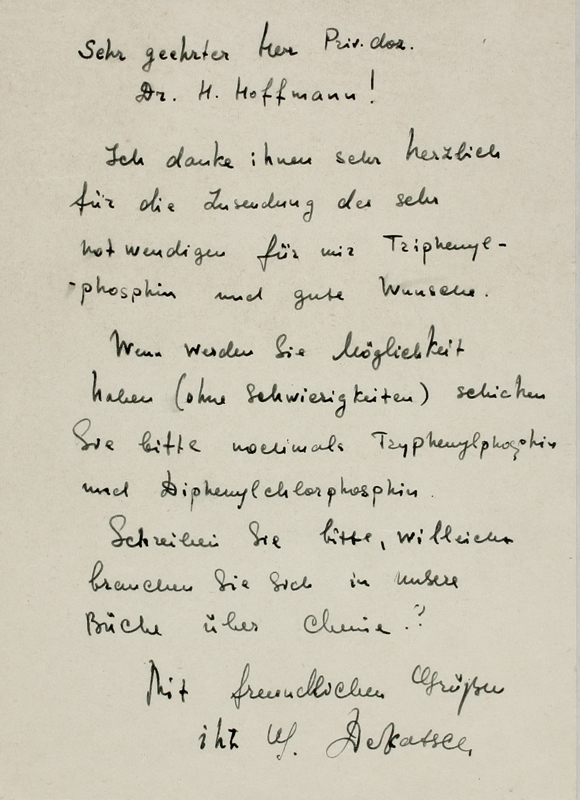 Sehr geehrter Herr Priv. doz.
Dr. H. Hoffmann!
Ich danke ihnen sehr herzlich
für die Zusendung des sehr
notwendigen für mir Triphenyl-
-phosphin und gute Wunsche.
Wenn werden Sie Möglichkeit
haben (ohne Schwierigkeiten) schicken
Sie bitte nochmals Tryphenylphosphin
und Diphenylchlorphosphin.
Schreiben Sie bitte, villeicht
brauchen Sie Sich in unsere
Büche über Chemie.?
Mit freundlichen Grüßen
ihr